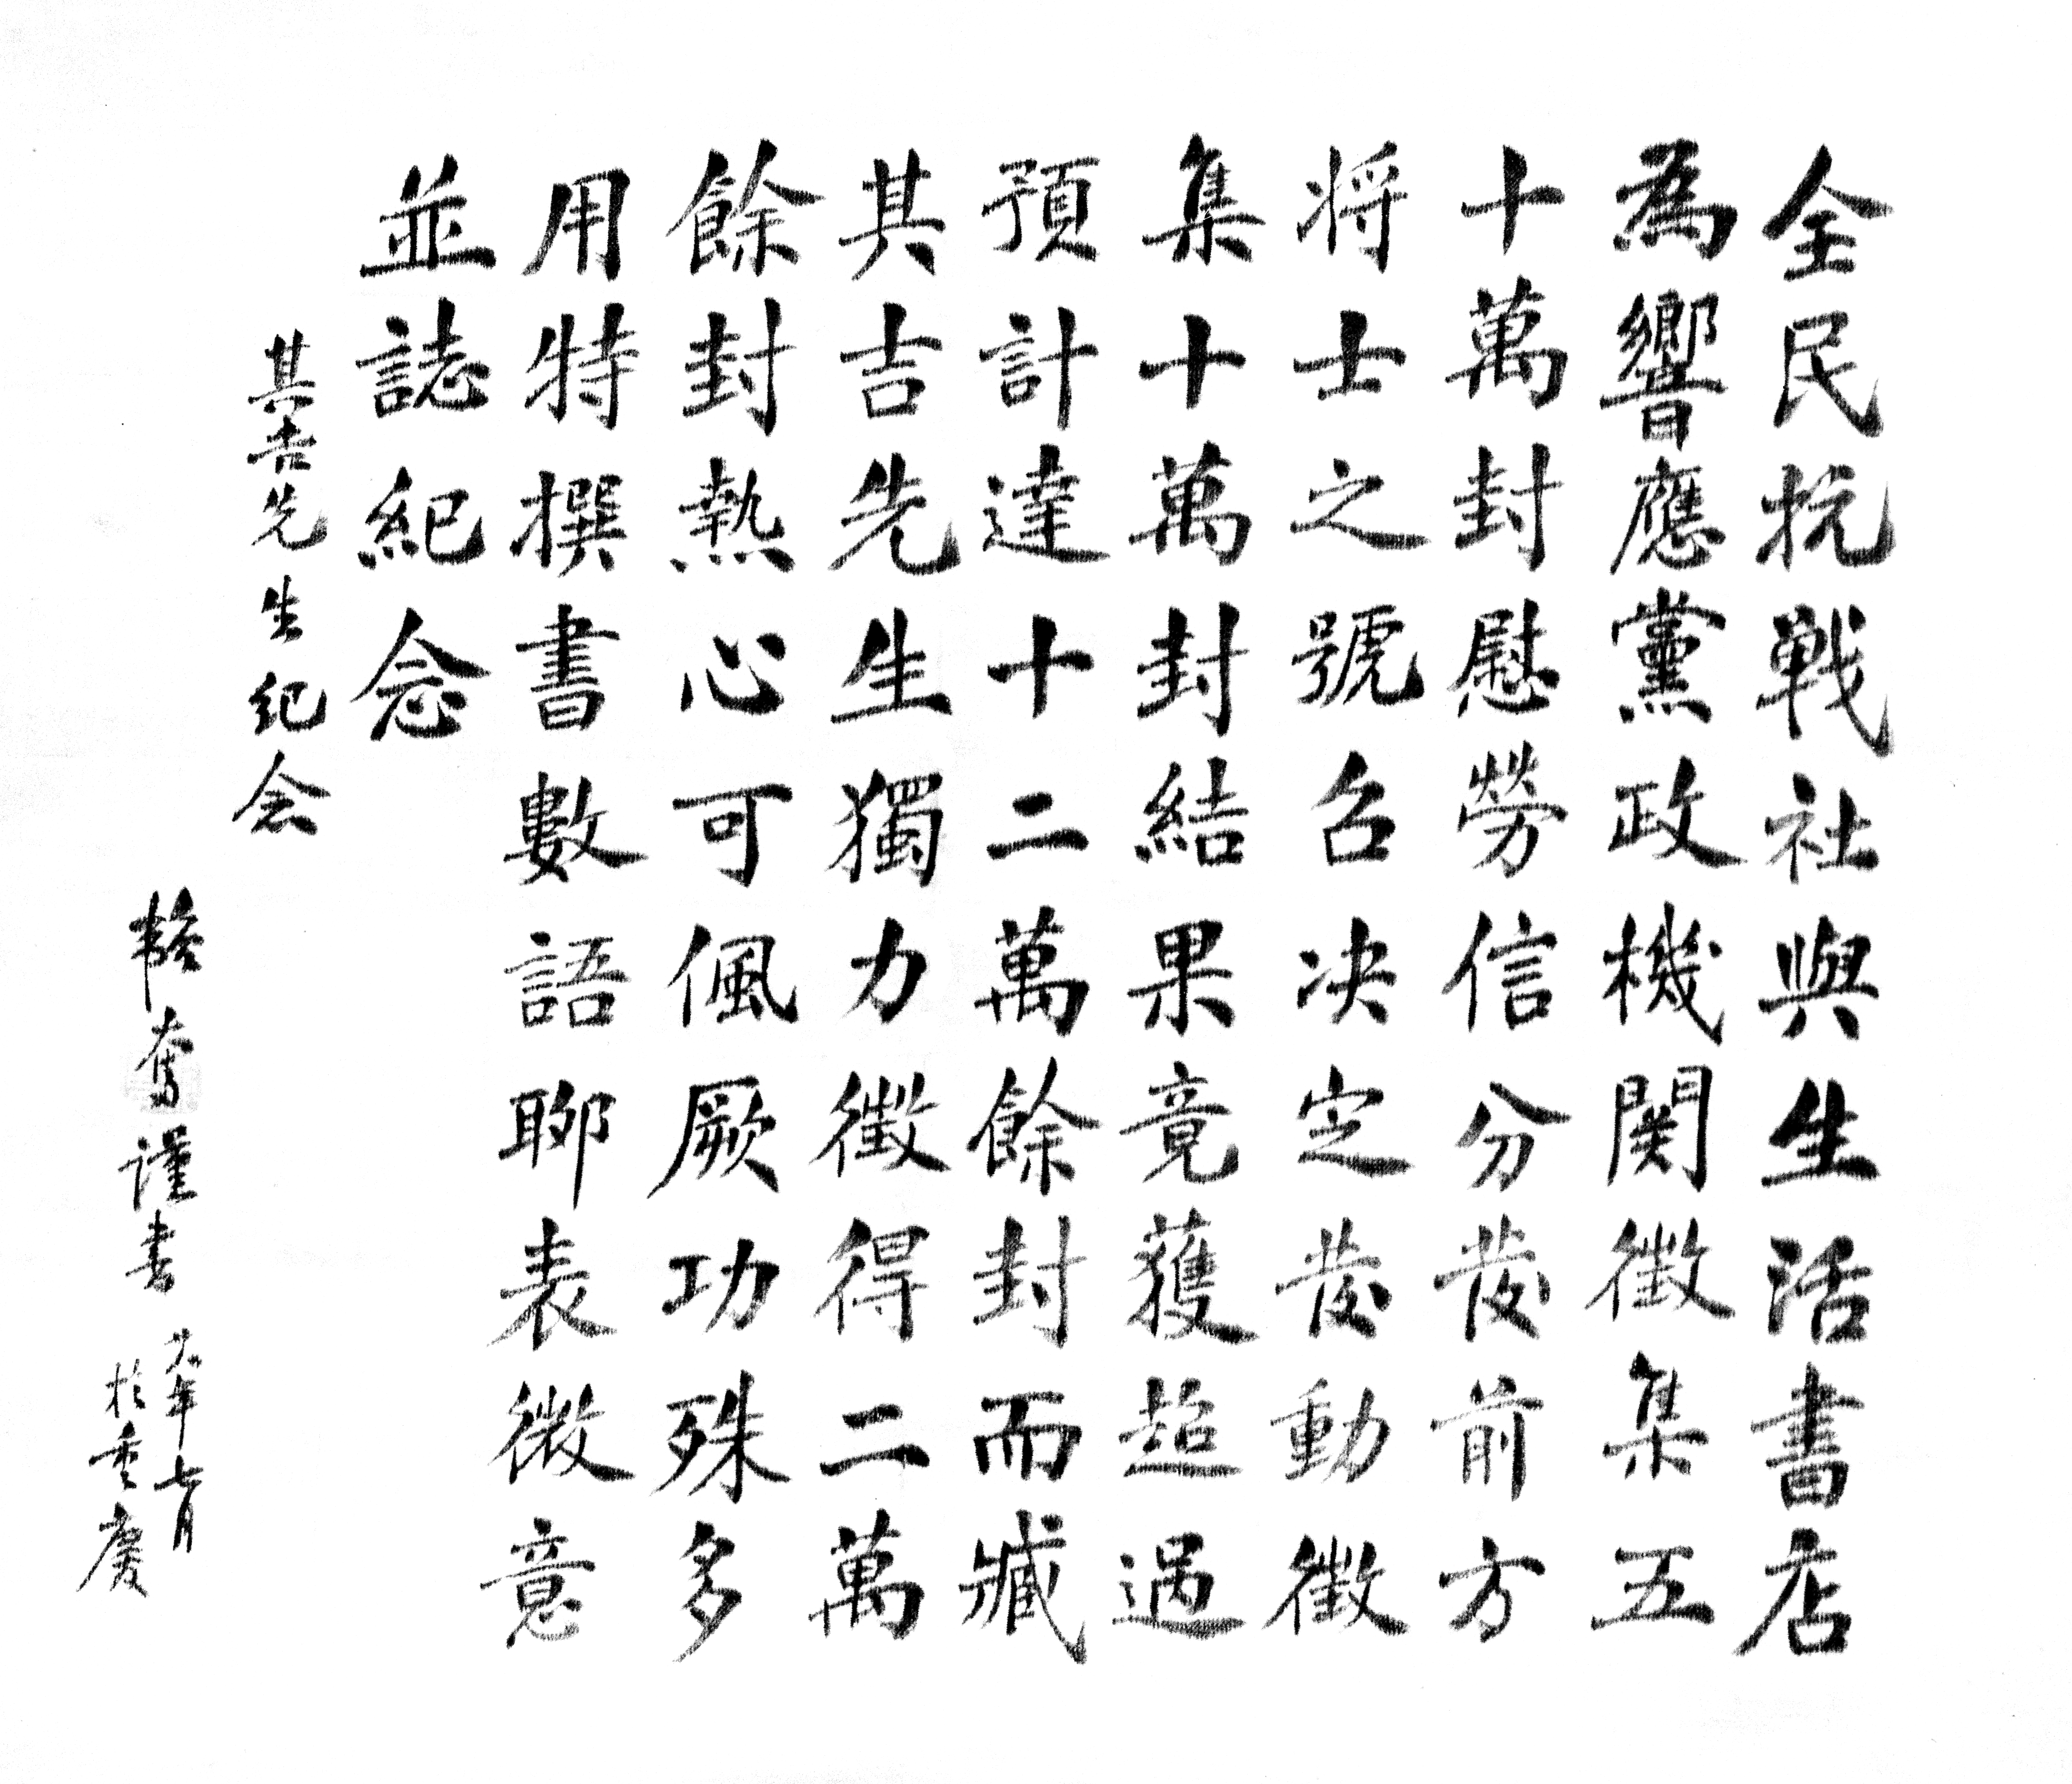 全民抗戰社與生活書店
為響應黨政機関徵集五
十萬封慰勞信分發前方
将士之號召决定發動徵
集十萬封結果竟獲超過
預計達十二萬餘封而臧
其吉先生獨力徵得二萬
餘封熱心可佩厥功殊多
用特撰書數語聊表微意
並誌紀念
其吉先生紀念
韜奮謹書
廿八年七月
於重慶